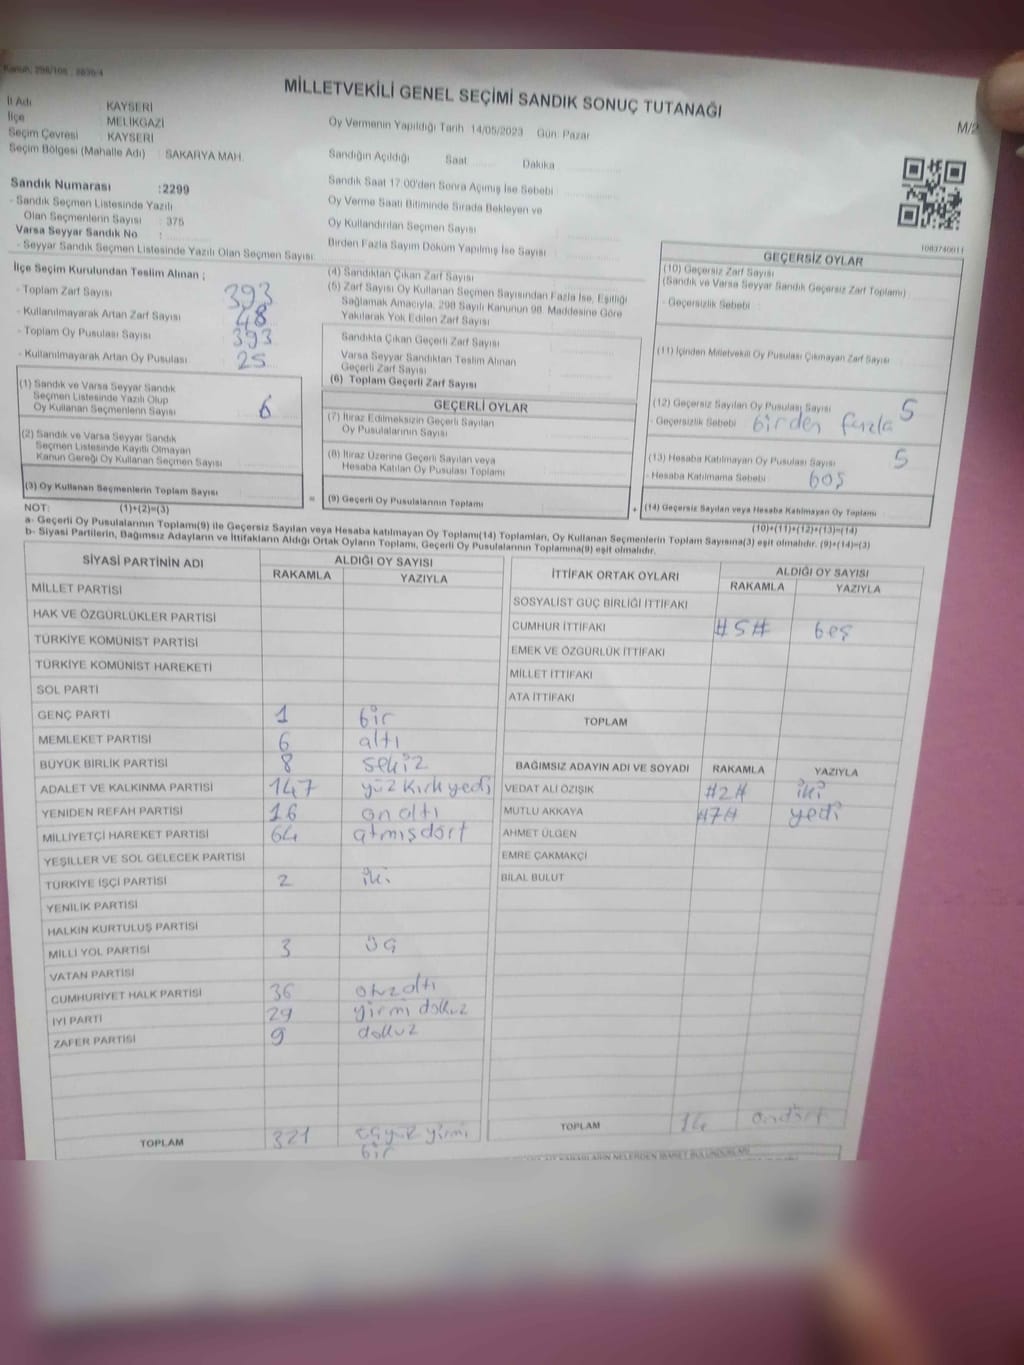 Kanun: 298/105 , 2839/4
MİLLETVEKİLİ GENEL SEÇİMİ SANDIK SONUÇ TUTANAĞI
M/2
İl Adı : KAYSERİ
İlçe : MELİKGAZİ
Seçim Çevresi : KAYSERİ
Seçim Bölgesi (Mahalle Adı) : SAKARYA MAH.
Oy Vermenin Yapıldığı Tarih 14/05/2023 Gün: Pazar
Sandığın Açıldığı Saat Dakika
Sandık Saat 17.00'den Sonra Açımış İse Sebebi
Oy Verme Saati Bitiminde Sırada Bekleyen ve
Oy Kullandırılan Seçmen Sayısı
Birden Fazla Sayım Döküm Yapılmış İse Sayısı
Sandık Numarası :2299
- Sandık Seçmen Listesinde Yazılı
Olan Seçmenlerin Sayısı : 375
Varsa Seyyar Sandık No :
- Seyyar Sandık Seçmen Listesinde Yazılı Olan Seçmen Sayısı:
1083740011
İlçe Seçim Kurulundan Teslim Alınan ;
- Toplam Zarf Sayısı 393
- Kullanılmayarak Artan Zarf Sayısı 48
- Toplam Oy Pusulası Sayısı 393
- Kullanılmayarak Artan Oy Pusulası 25
(1) Sandık ve Varsa Seyyar Sandık
Seçmen Listesinde Yazılı Olup
Oy Kullanan Seçmenlerin Sayısı 6
(2) Sandık ve Varsa Seyyar Sandık
Seçmen Listesinde Kayıtlı Olmayan
Kanun Gereği Oy Kullanan Seçmen Sayısı
(3) Oy Kullanan Seçmenlerin Toplam Sayısı
(4) Sandıktan Çıkan Zarf Sayısı
(5) Zarf Sayısı Oy Kullanan Seçmen Sayısından Fazla İse, Eşitliği
Sağlamak Amacıyla, 298 Sayılı Kanunun 98. Maddesine Göre
Yakılarak Yok Edilen Zarf Sayısı
Sandıkta Çıkan Geçerli Zarf Sayısı
Varsa Seyyar Sandıktan Teslim Alınan
Geçerli Zarf Sayısı
(6) Toplam Geçerli Zarf Sayısı
GEÇERLİ OYLAR
(7) İtiraz Edilmeksizin Geçerli Sayılan
Oy Pusulalarının Sayısı
(8) İtiraz Üzerine Geçerli Sayılan veya
Hesaba Katılan Oy Pusulaları Toplamı
= (9) Geçerli Oy Pusulalarının Toplamı
GEÇERSİZ OYLAR
(10) Geçersiz Zarf Sayısı
(Sandık ve Varsa Seyyar Sandık Geçersiz Zarf Toplamı)
- Geçersizlik Sebebi
(11) İçinden Milletvekili Oy Pusulası Çıkmayan Zarf Sayısı
(12) Geçersiz Sayılan Oy Pusulası Sayısı 5
- Geçersizlik Sebebi birden fazla
(13) Hesaba Katılmayan Oy Pusulası Sayısı 5
- Hesaba Katılmama Sebebi boş
+ (14) Geçersiz Sayılan veya Hesaba Katılmayan Oy Toplamı
NOT: (1)+(2)=(3)
(10)+(11)+(12)+(13)=(14)
a- Geçerli Oy Pusulalarının Toplamı(9) ile Geçersiz Sayılan veya Hesaba katılmayan Oy Toplamı(14) Toplamları, Oy Kullanan Seçmenlerin Toplam Sayısına(3) eşit olmalıdır. (9)+(14)=(3)
b- Siyasi Partilerin, Bağımsız Adayların ve İttifakların Aldığı Ortak Oyların Toplamı, Geçerli Oy Pusulalarının Toplamına(9) eşit olmalıdır.
SİYASİ PARTİNİN ADI ALDIĞI OY SAYISI
RAKAMLA YAZIYLA
MİLLET PARTİSİ
HAK VE ÖZGÜRLÜKLER PARTİSİ
TÜRKİYE KOMÜNİST PARTİSİ
TÜRKİYE KOMÜNİST HAREKETİ
SOL PARTİ
GENÇ PARTİ 1 bir
MEMLEKET PARTİSİ 6 altı
BÜYÜK BİRLİK PARTİSİ 8 sekiz
ADALET VE KALKINMA PARTİSİ 147 yüz kırk yedi
YENİDEN REFAH PARTİSİ 16 on altı
MİLLİYETÇİ HAREKET PARTİSİ 64 atmışdört
YEŞİLLER VE SOL GELECEK PARTİSİ
TÜRKİYE İŞÇİ PARTİSİ 2 iki
YENİLİK PARTİSİ
HALKIN KURTULUŞ PARTİSİ
MİLLİ YOL PARTİSİ 3 üç
VATAN PARTİSİ
CUMHURİYET HALK PARTİSİ 36 otuzaltı
İYİ PARTİ 29 yirmi dokuz
ZAFER PARTİSİ 9 dokuz
TOPLAM 321 üçyüz yirmi
bir
İTTİFAK ORTAK OYLARI ALDIĞI OY SAYISI
RAKAMLA YAZIYLA
SOSYALİST GÜÇ BİRLİĞİ İTTİFAKI
CUMHUR İTTİFAKI #5# beş
EMEK VE ÖZGÜRLÜK İTTİFAKI
MİLLET İTTİFAKI
ATA İTTİFAKI
TOPLAM
BAĞIMSIZ ADAYIN ADI VE SOYADI RAKAMLA YAZIYLA
VEDAT ALİ ÖZIŞIK #2# iki
MUTLU AKKAYA #7# yedi
AHMET ÜLGEN
EMRE ÇAKMAKÇI
BİLAL BULUT
TOPLAM 14 ondört